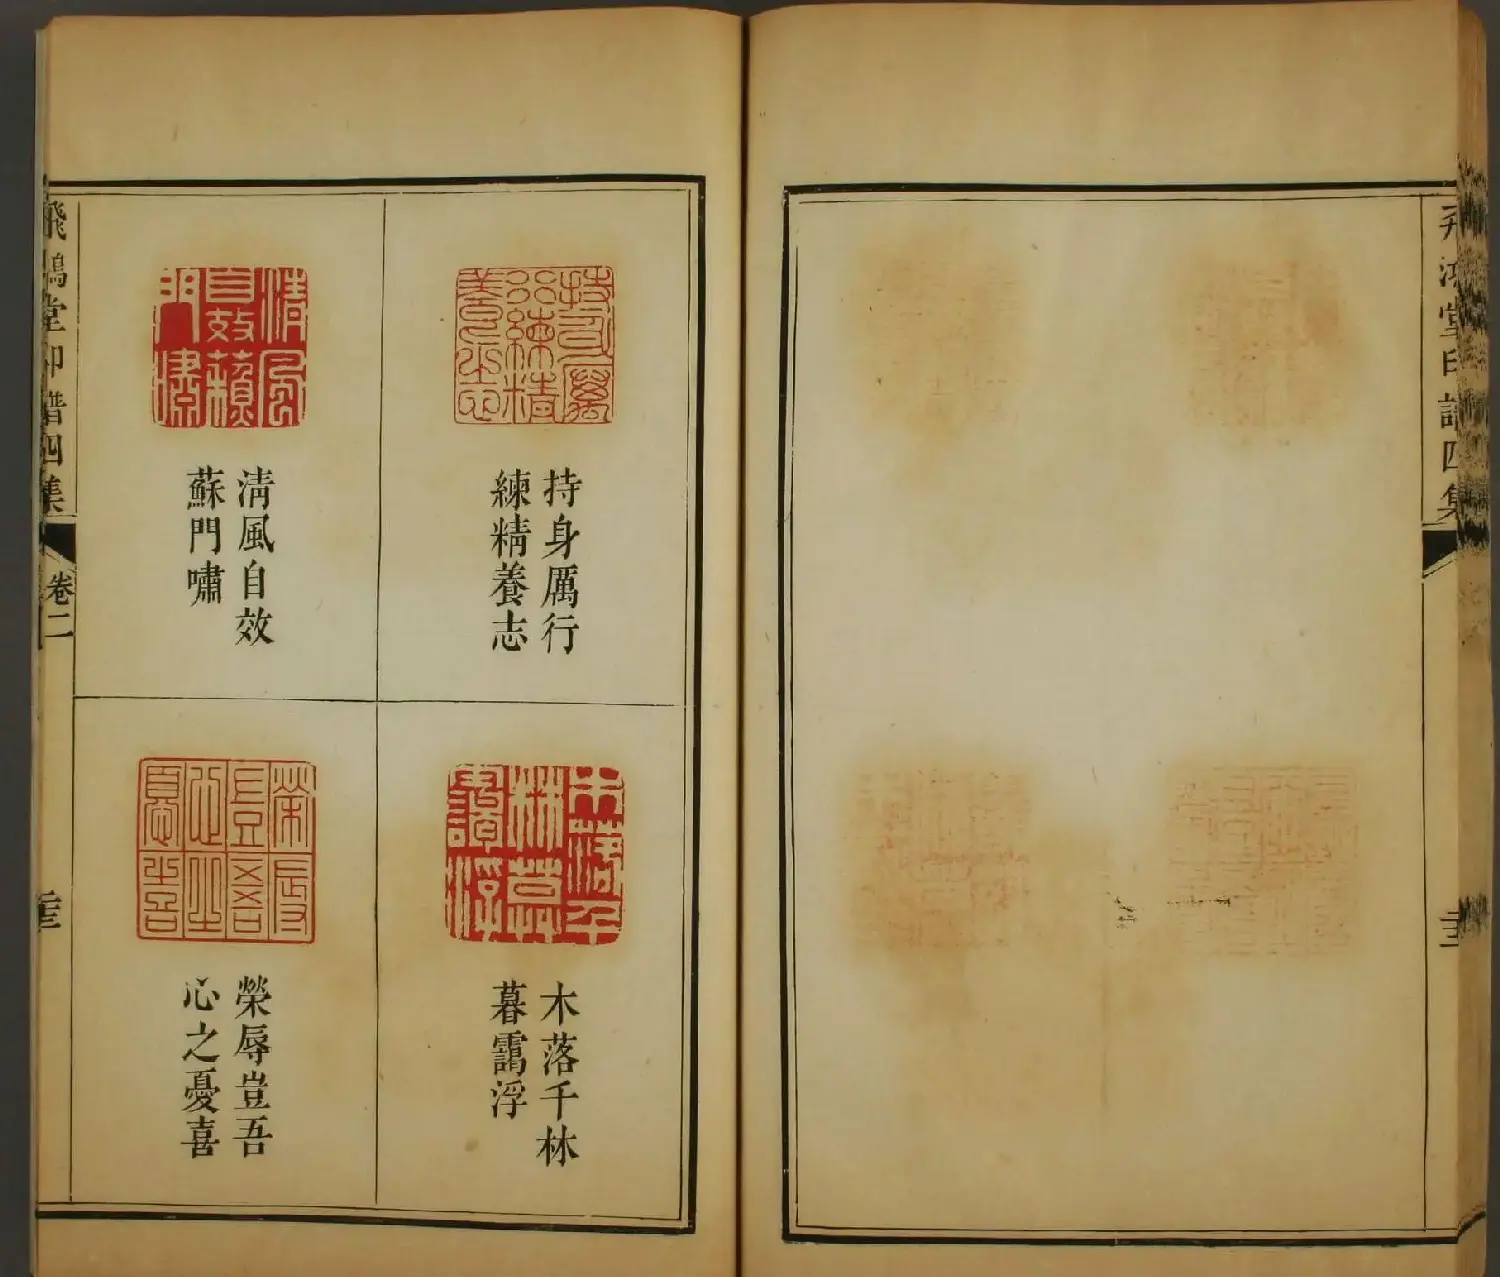 飛鴻堂印譜四集
持身厲行
練精養志
清風自效
蘇門嘯
木落千林
暮靄浮
榮辱豈吾
心之憂喜
飛鴻堂印譜四集
卷二